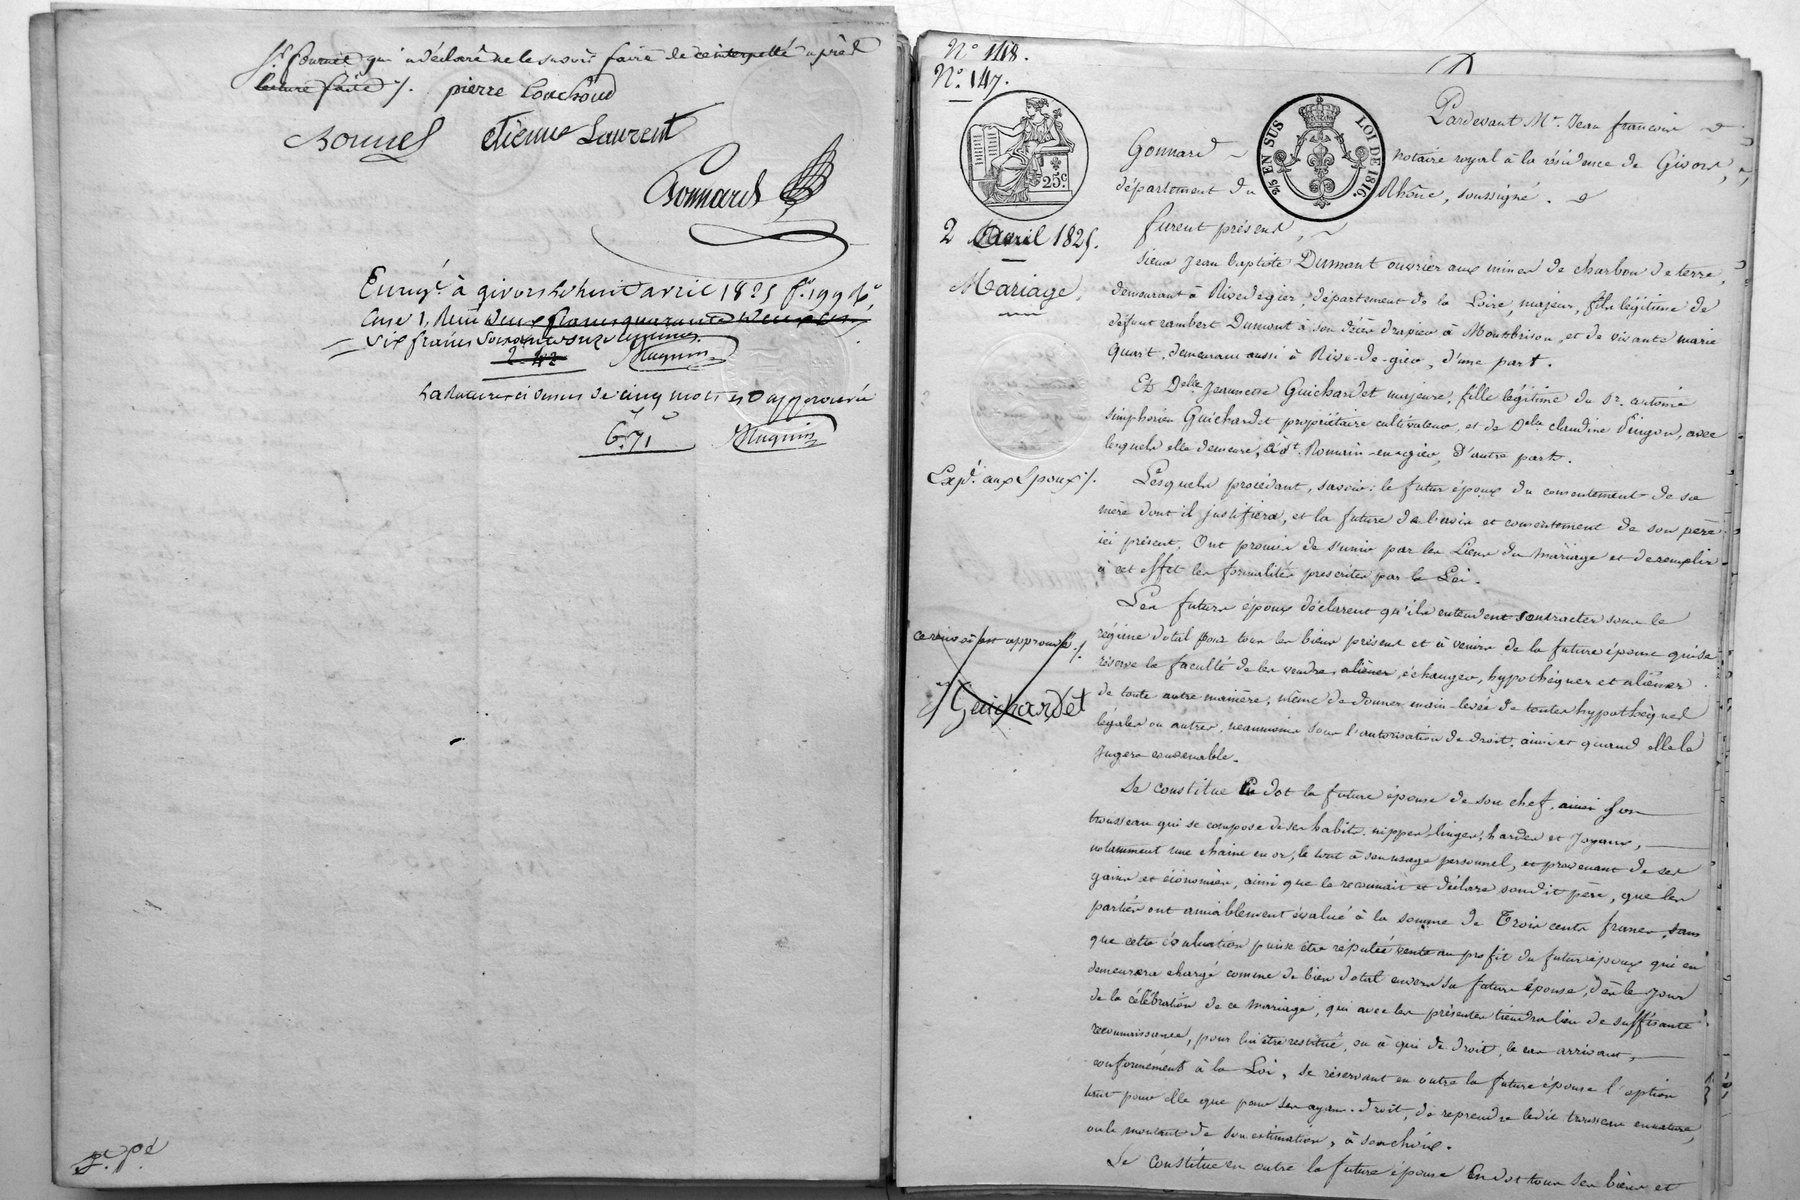 Sr. fournel qui a déclaré ne le savoir faire de ce interpellé après
lecture faite ./.
pierre Couchoud
Bonnel etienne Laurent
Gonnard
Enregé. à givors le huit avril 1825 fo. 199 Ro.
Case 1, Reçu deux francs quarante deux cmes
Six francs Soixante onze centimes
2-42
Huguin
La rature ci dessus de cinq mots est approuvée
6.71
Huguin
N° 148.
N° 147.
25c.
2/5 EN SUS LOI DE 1816.
2 Avril 1825.
Mariage,
Expd. aux Epoux ./.
ce renvoi est approuvé ./.
Guichardet
Pardevant Me. Jean françois
Gonnard notaire royal à la résidence de Givors,
département du Rhône, soussigné.
furent présens,
Sieur Jean Baptiste Dumont ouvrier aux mines de charbon de terre,
demeurant à Rivedegier, département de la Loire, majeur, fils légitime de
défunt rambert Dumont à son décès drapier à Montbrison, et de vivante marie
Quart, demeurant aussi à Rive-de-gier, d'une part.
Et Delle. Jeannette Guichardet majeure, fille légitime du Sr. antoine
simphorien Guichardet propriétaire cultivateur, et de Delle. claudine Pingon, avec
lesquels elle demeure, à St. Romain-en-gier, d'autre part.
Lesquels procédant, savoir : le futur époux du consentement de sa
mère dont il justifiera, et la future de l'avis et consentement de son père
ici présent, Ont promis de s'unir par les Liens du mariage et de remplir
à cet effet les formalités prescrites par la Loi.
Les futurs époux déclarent qu'ils entendent contracter sous le
régime dotal pour tous les biens présens et à venir de la future épouse qui se
réserve la faculté de les vendre, aliéner, échanger, hypothéquer et aliéner
de toute autre manière, même de donner main-levée de toutes hypothèques
légales ou autres, néanmoins sous l'autorisation de droit, ainsi et quand elle le
jugera convenable.
Se constitue En dot la future épouse de son chef, ainsi son
trousseau qui se compose de ses habits, nippes, linges, hardes et joyaux,
notamment une chaine en or, le tout à son usage personnel, et provenant de ses
gains et économies, ainsi que le reconnait et déclare son dit père, que les
parties ont amiablement évalué à la somme de Trois cents francs, sans
que cette évaluation puisse être réputée vente au profit du futur époux qui en
demeurera chargé comme de bien dotal envers sa future épouse, dès le jour
de la célébration de ce mariage, qui avec les présentes tiendra lieu de suffisante
reconnaissance, pour lui être restitué, ou à qui de droit, le cas arrivant,
conformément à la Loi, se réservant en outre la future épouse l'option
tant pour elle que pour ses ayans-droit, de reprendre ledit trousseau en nature,
ou le montant de son estimation, à son choix.
Se constitue en outre la future épouse En dot tous ses biens et